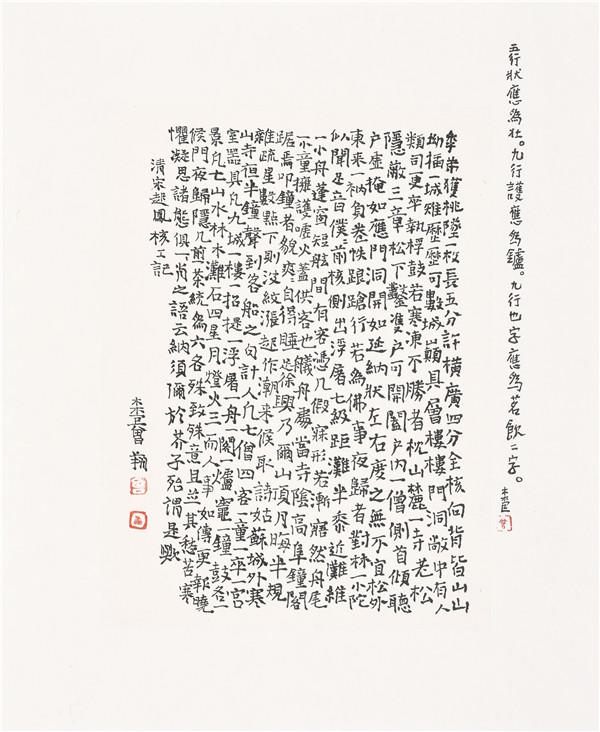 五行狀應為壯。九行護應為鑪。九行也字應為茗飲二字。
季弟獲桃墜一枚長五分許橫廣四分全核向背皆山山
坳插一城雉歷歷可數城巔具層樓樓門洞敞中有人
類司更卒執桴鼓若寒凍不勝者枕山麓一寺老松
隱蔽三章松下鑿雙戶可開闔戶內一僧側首傾聽
戶虛掩如應門洞開如延納狀左右度之無不宜松外
東來一衲負卷帙踉蹌行若為佛事夜歸者對林一小陀
似聞足音僕僕前核側出浮屠七級距灘半黍近灘維
一小舟蓬窗短舷間有客憑几假寐形若漸寤然舟尾
一小童擁護噓火蓋供客也艤舟處當寺陰高阜鐘閣
踞焉叩鐘者貌爽爽自得睡足徐興乃爾山頂月晦半規
雜疏星數點下則波紋漲起作潮來候取詩姑蘇城外寒
山寺夜半鐘聲到客船之句計人凡七僧四客一童一卒一宮
室器具凡九城一樓一招提一浮屠一舟一閣一爐竈一鐘鼓各一
景凡七山水林木灘石四星月燈火三而人事如傳更報曉
候門夜歸隱几煎茶統為六各殊致殊意且並其愁苦寒
懼凝思諸態俱一一肖之語云納須彌於芥子殆謂是歟
清宋起鳳核工記